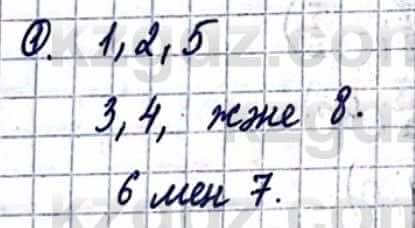 ①. 1, 2, 5
3, 4, және 8.
6 мен 7.